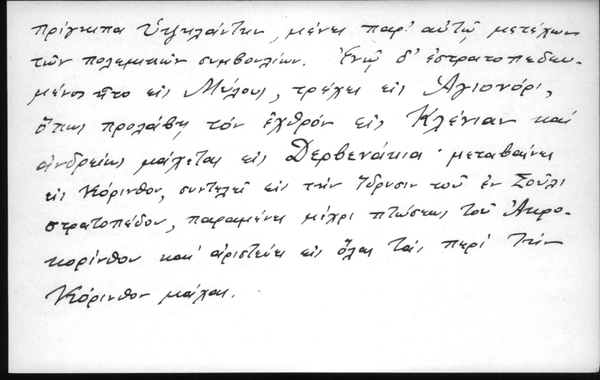 πρίγκιπα Ὑψηλάντην, μένει παρ' αὐτῷ μετέχων
τῶν πολεμικῶν συμβουλίων. Ἐνῷ δ' ἐστρατοπεδευ-
μένος ἦτο εἰς Μύλους, τρέχει εἰς Ἁγιονόρι,
ὅπως προλάβῃ τόν ἐχθρόν εἰς Κλένιαν καί
ἀνδρείως μάχεται εἰς Δερβενάκια· μεταβαίνει
εἰς Κόρινθον, συντελεῖ εἰς τήν ἵδρυσιν τοῦ ἐν Σούλι
στρατοπέδου, παραμένει μέχρι πτώσεως τοῦ Ἀκρο-
κορίνθου καί ἀριστεύει εἰς ὅλας τάς περί τήν
Κόρινθον μάχας.